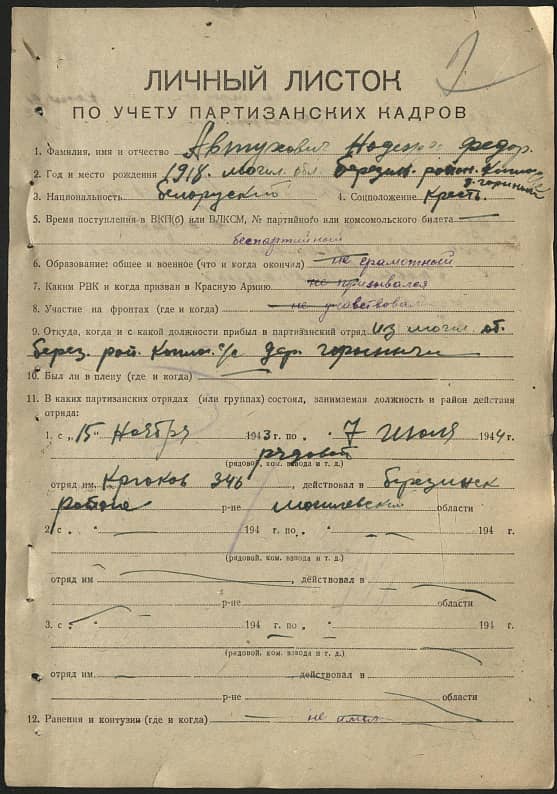 2
ЛИЧНЫЙ ЛИСТОК
ПО УЧЕТУ ПАРТИЗАНСКИХ КАДРОВ
1. Фамилия, имя и отчество Автухович Федор.
2. Год и место рождения 1918. могил. обл. Березин. район.
д. горинич
3. Национальность белоруский 4. Соцположение Кресть.
5. Время поступления в ВКП(б) или ВЛКСМ, № партийного или комсомольского билета
беспартийный
6. Образование: общее и военное (что и когда окончил) не грамотный
7. Каким РВК и когда призван в Красную Армию не призывался
8. Участие на фронтах (где и когда) не учавствовал
9. Откуда, когда и с какой должности прибыл в партизанский отряд из могил. об.
берез. рай. с/с дер. гориничи
10. Был ли в плену (где и когда)
11. В каких партизанских отрядах (или группах) состоял, занимаемая должность и район действия
отряда:
1. с „15" Ноября 1943 г. по „7 Июля 1944 г.
рядовой
(рядовой, ком. взвода и т. д.)
отряд им. Крюков 346, действовал в березинск
района р-не могилевской области
2. с „ " 194 г. по „ " 194 г.
(рядовой, ком. взвода и т. д.)
отряд им , действовал в
р-не области
3. с „ " 194 г. по „ " 194 г.
(рядовой, ком. взвода и т. д.)
отряд им. действовал в
р-не области
12. Ранения и контузии (где и когда) не имел